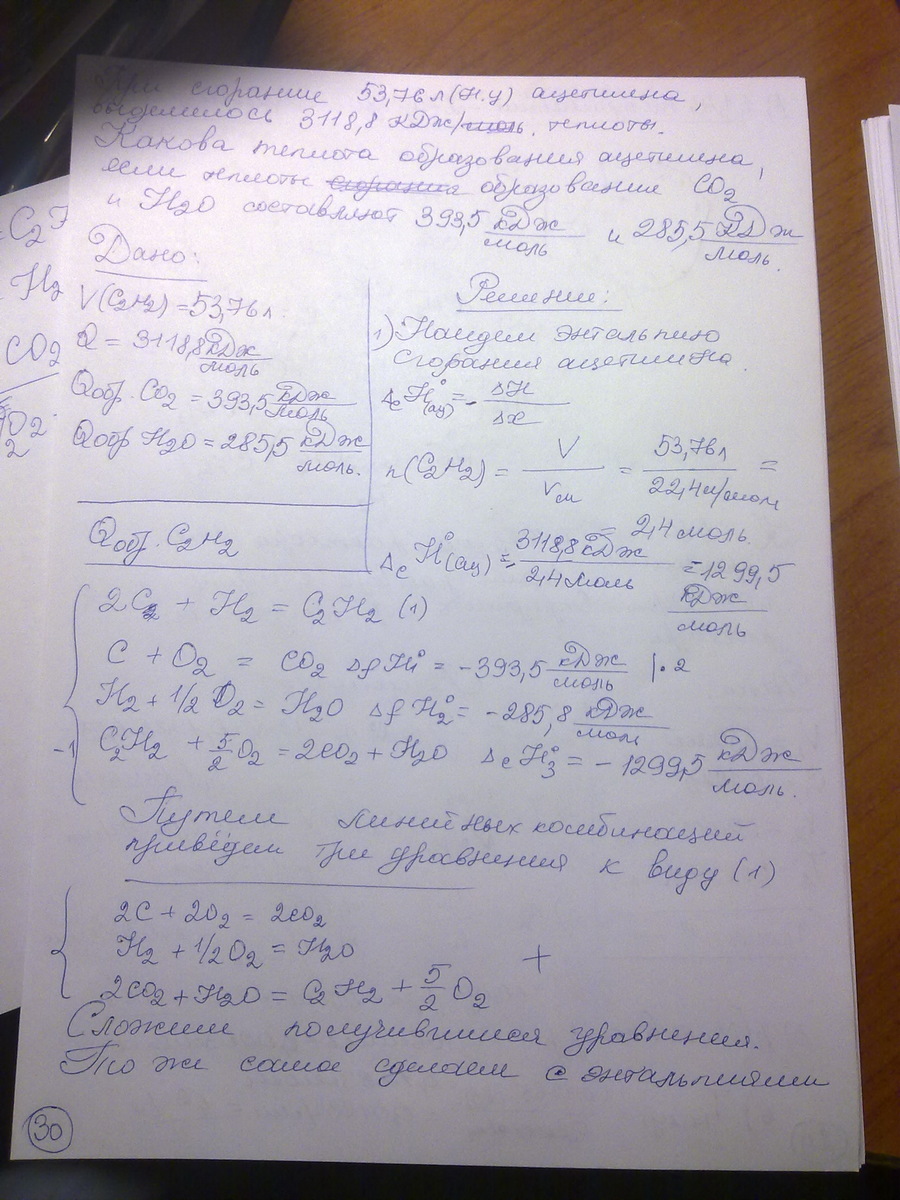 При сгорание 53,76 л (н.у) ацетилена,
выделилось 3118,8 кДж/моль теплоты.
Какова теплота образования ацетилена,
если теплоты сгорания образования CO2
и H2O составляют 393,5 кДж/моль и 285,5 кДж/моль.
Дано:
V(C2H2) = 53,76 л
Q = 3118,8 кДж/моль
Qобр. CO2 = 393,5 кДж/моль
Qобр H2O = 285,5 кДж/моль.
Qобр. C2H2
Решение:
1) Найдем энтальпию
сгорания ацетилена
ΔcH°(ац) = - ΔH/Δx
n(C2H2) = V/Vм = 53,76 л/22,4 л/моль =
= 2,4 моль.
ΔcH°(ац) = - 3118,8 кДж/2,4 моль = -1299,5
кДж/моль
2C + H2 = C2H2 (1)
C + O2 = CO2 ΔfH° = -393,5 кДж/моль |·2
H2 + 1/2 O2 = H2O ΔfH2° = -285,8 кДж/моль
-1 C2H2 + 5/2 O2 = 2CO2 + H2O ΔcH3° = -1299,5 кДж/моль.
Путем линейных комбинаций
приведём три уравнения к виду (1)
2C + 2O2 = 2CO2
H2 + 1/2 O2 = H2O +
2CO2 + H2O = C2H2 + 5/2 O2
Сложим получившиеся уравнения.
То же самое сделаем с энтальпиями
30
H2
CO2